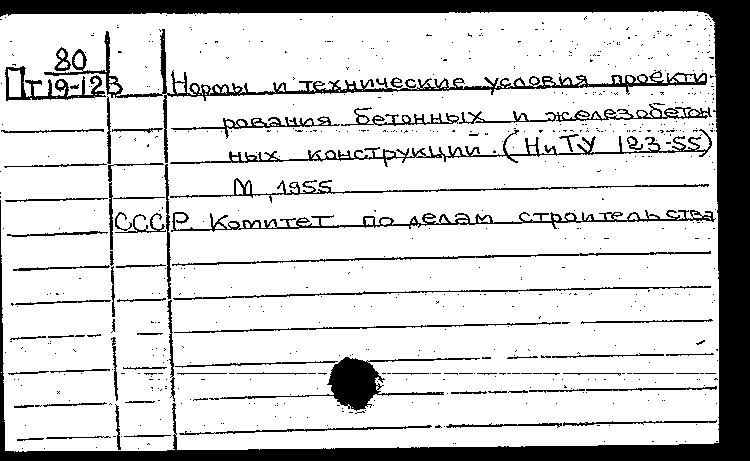 80
Пт19-123 Нормы и технические условия проекти-
рования бетонных и железобетон-
ных конструкций. (НиТУ 123-55)
М, 1955
СССР. Комитет по делам строительства